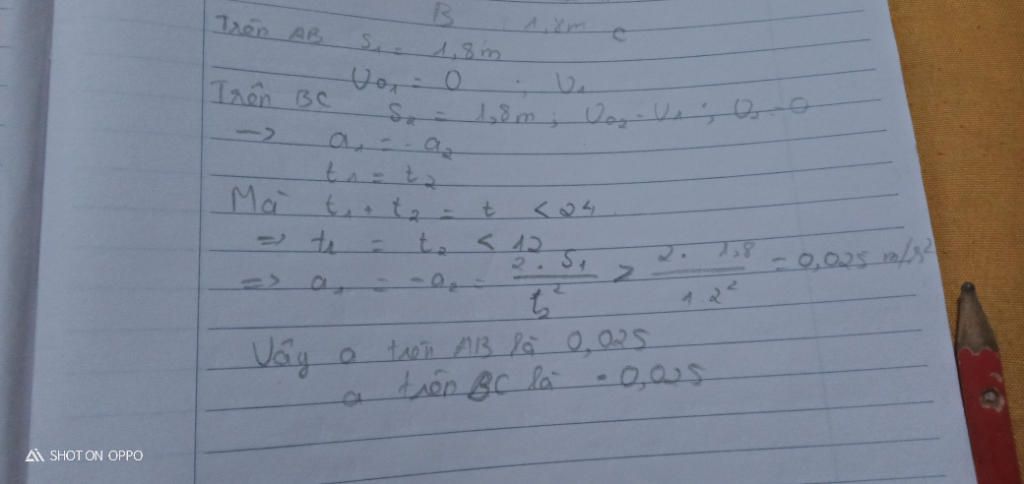 B 1,8m C
Trên AB S₁ = 1,8m
V₀₁ = 0 ; V₁
Trên BC S₂ = 1,8m ; V₀₂ = V₁ ; V₂ = 0
→ a₁ = -a₂
t₁ = t₂
Mà t₁ + t₂ = t < 24
⇒ t₁ = t₂ < 12
⇒ a₁ = -a₂ = 2 . S₁ / t₂² > 2 . 1,8 / 12² = 0,025 m/s²
Vậy a trên AB là 0,025
a trên BC là -0,025
SHOT ON OPPO